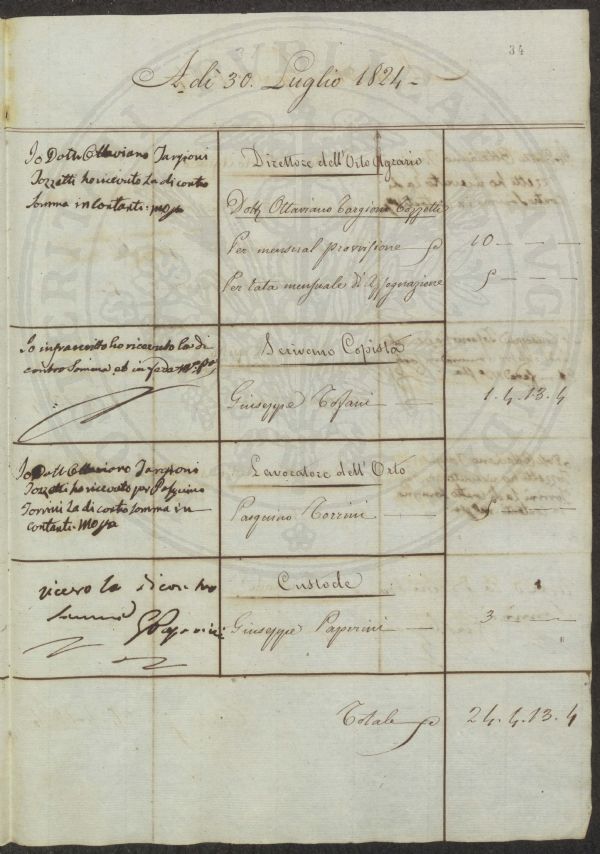 34
A dì 30. Luglio 1824
Io Dott. Ottaviano Targioni
Tozzetti ho ricevuto La di contro
somma in Contanti: mo pa
Direttore dell'Orto Agrario
Dott. Ottaviano Targioni Tozzetti
Per mensual provvisione
10 — — —
Per rata mensuale di Assegnazione
5 — — —
Io infrascritto ho ricevuto la di
contro Somma ed in fede
Scrivano Copista
Giuseppe Tofani
1. 4. 13. 4
Io Dott. Ottaviano Targioni
Tozzetti ho ricevuto per Pasquino
Torrini La di contro somma in
contanti: mo pa
Lavoratore dell'Orto
Pasquino Torrini
5
ricevo la di contro
somma
G Paperini
Custode
Giuseppe Paperini
3
Totale
24. 4. 13. 4